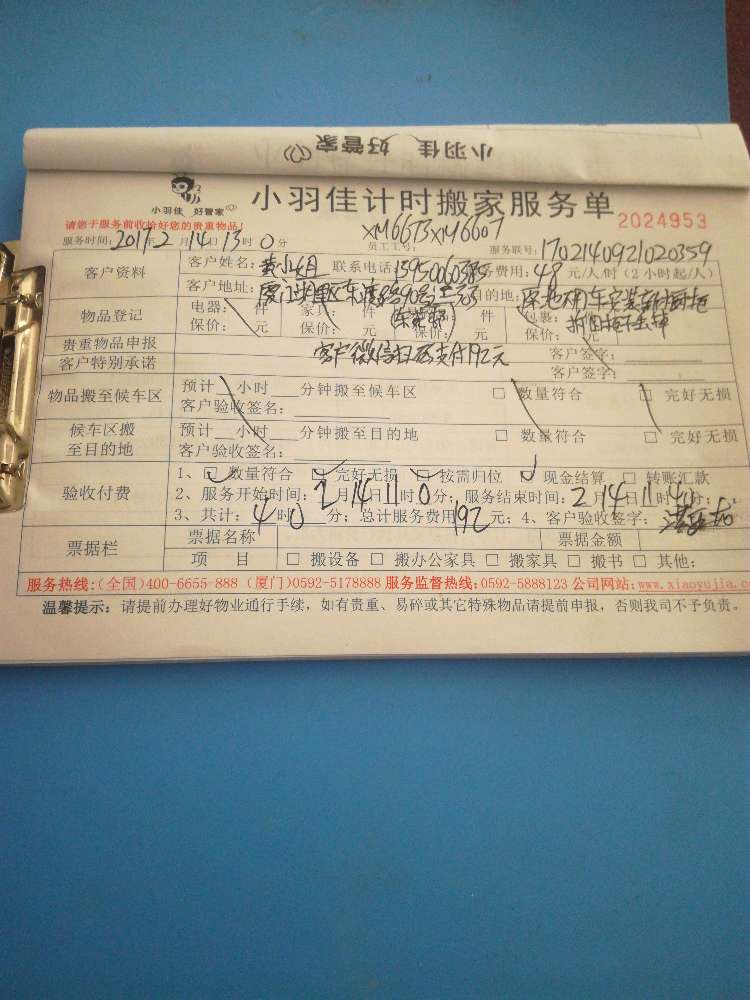 小羽佳 好管家
小羽佳 好管家
小羽佳计时搬家服务单 2024953
请您于服务前收拾好您的贵重物品!
XM6673 XM6607
服务时间:2017年2月14日13时0分 员工工号: 服务联号:1702140921020359
客户资料 客户姓名:黄小姐 联系电话:13950060385 费用:48元/人/时(2小时起/人)
客户地址:厦门湖里区东渡路90号 目的地:原地
物品登记 电器: 件 家具: 件 件 包裹:
保价: 元 保价: 元 保价: 元 保价:
贵重物品申报 客户签字:
客户特别承诺 客户微信扫码支付192元 客户签字:
物品搬至候车区 预计 小时 分钟搬至候车区 □ 数量符合 □ 完好无损
客户验收签名:
候车区搬至目的地 预计 小时 分钟搬至目的地 □ 数量符合 □ 完好无损
客户验收签名:
验收付费 1、☑ 数量符合 ☑ 完好无损 ☑ 按需归位 ☑ 现金结算 □ 转账汇款
2、服务开始时间:2月14日11时0分;服务结束时间:2月14日1时40分;
3、共计:4时0分;总计服务费用192元;4、客户验收签字:
票据栏 票据名称 票据金额
项 目 □ 搬设备 □ 搬办公家具 □ 搬家具 □ 搬书 □ 其他:
服务热线:(全国)400-6655-888 (厦门)0592-5178888 服务监督热线:0592-5888123 公司网站:www.xiaoyujia.c
温馨提示:请提前办理好物业通行手续,如有贵重、易碎或其它特殊物品请提前申报,否则我司不予负责。